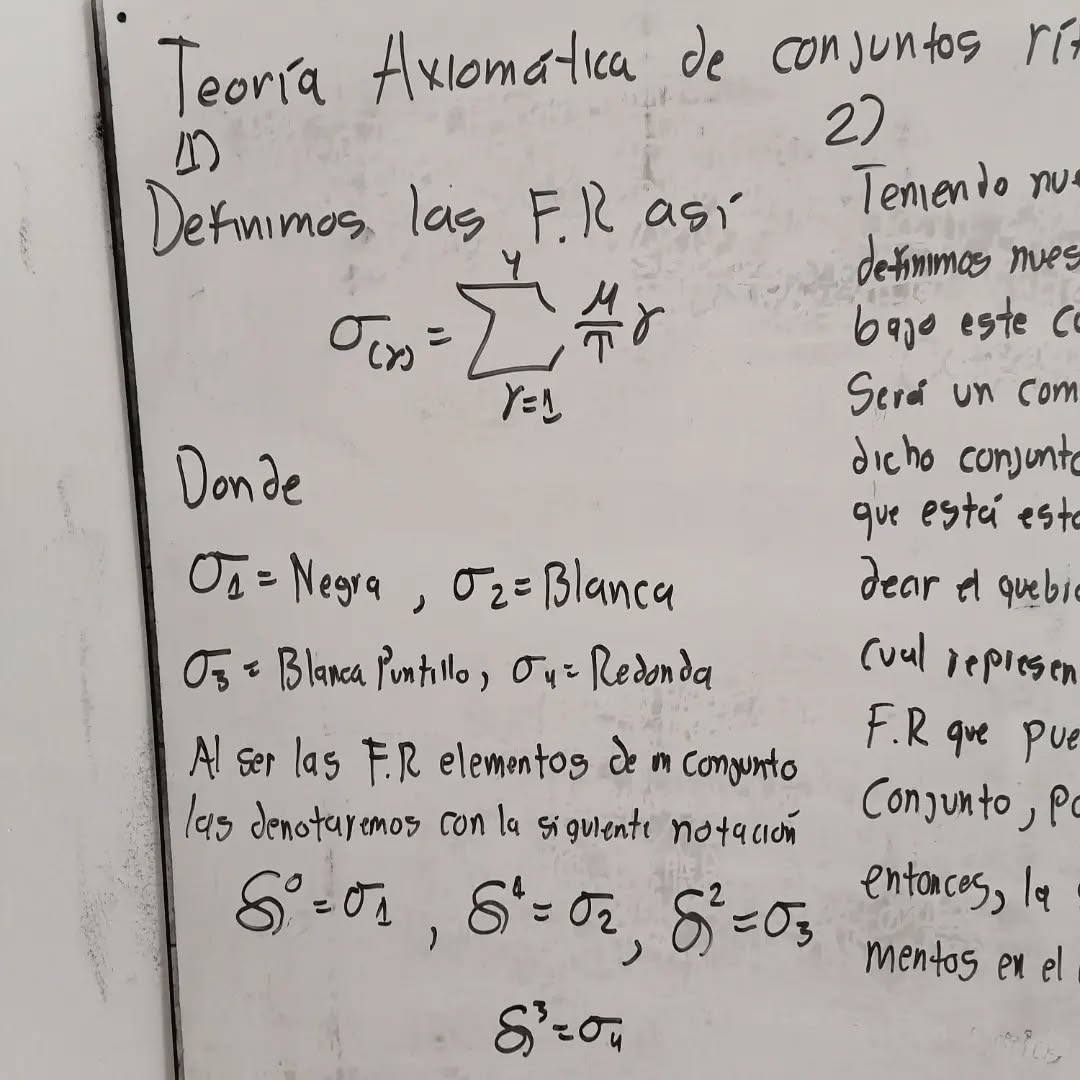 Teoría Axiomática de conjuntos rít
1)
Definimos las F.R así
σ(γ) = Σ μ/π γ
4
γ=1
Donde
σ1 = Negra , σ2 = Blanca
σ3 = Blanca Puntillo, σ4 = Redonda
Al ser las F.R elementos de un conjunto
las denotaremos con la siguiente notación
𝒮⁰ = σ1 , 𝒮¹ = σ2, 𝒮² = σ3
𝒮³ = σ4
2)
Teniendo nue
definimos nues
bajo este co
Será un com
dicho conjunto
que está esta
dear el quebra
cual represen
F.R que pue
Conjunto, po
entonces, la
mentos en el